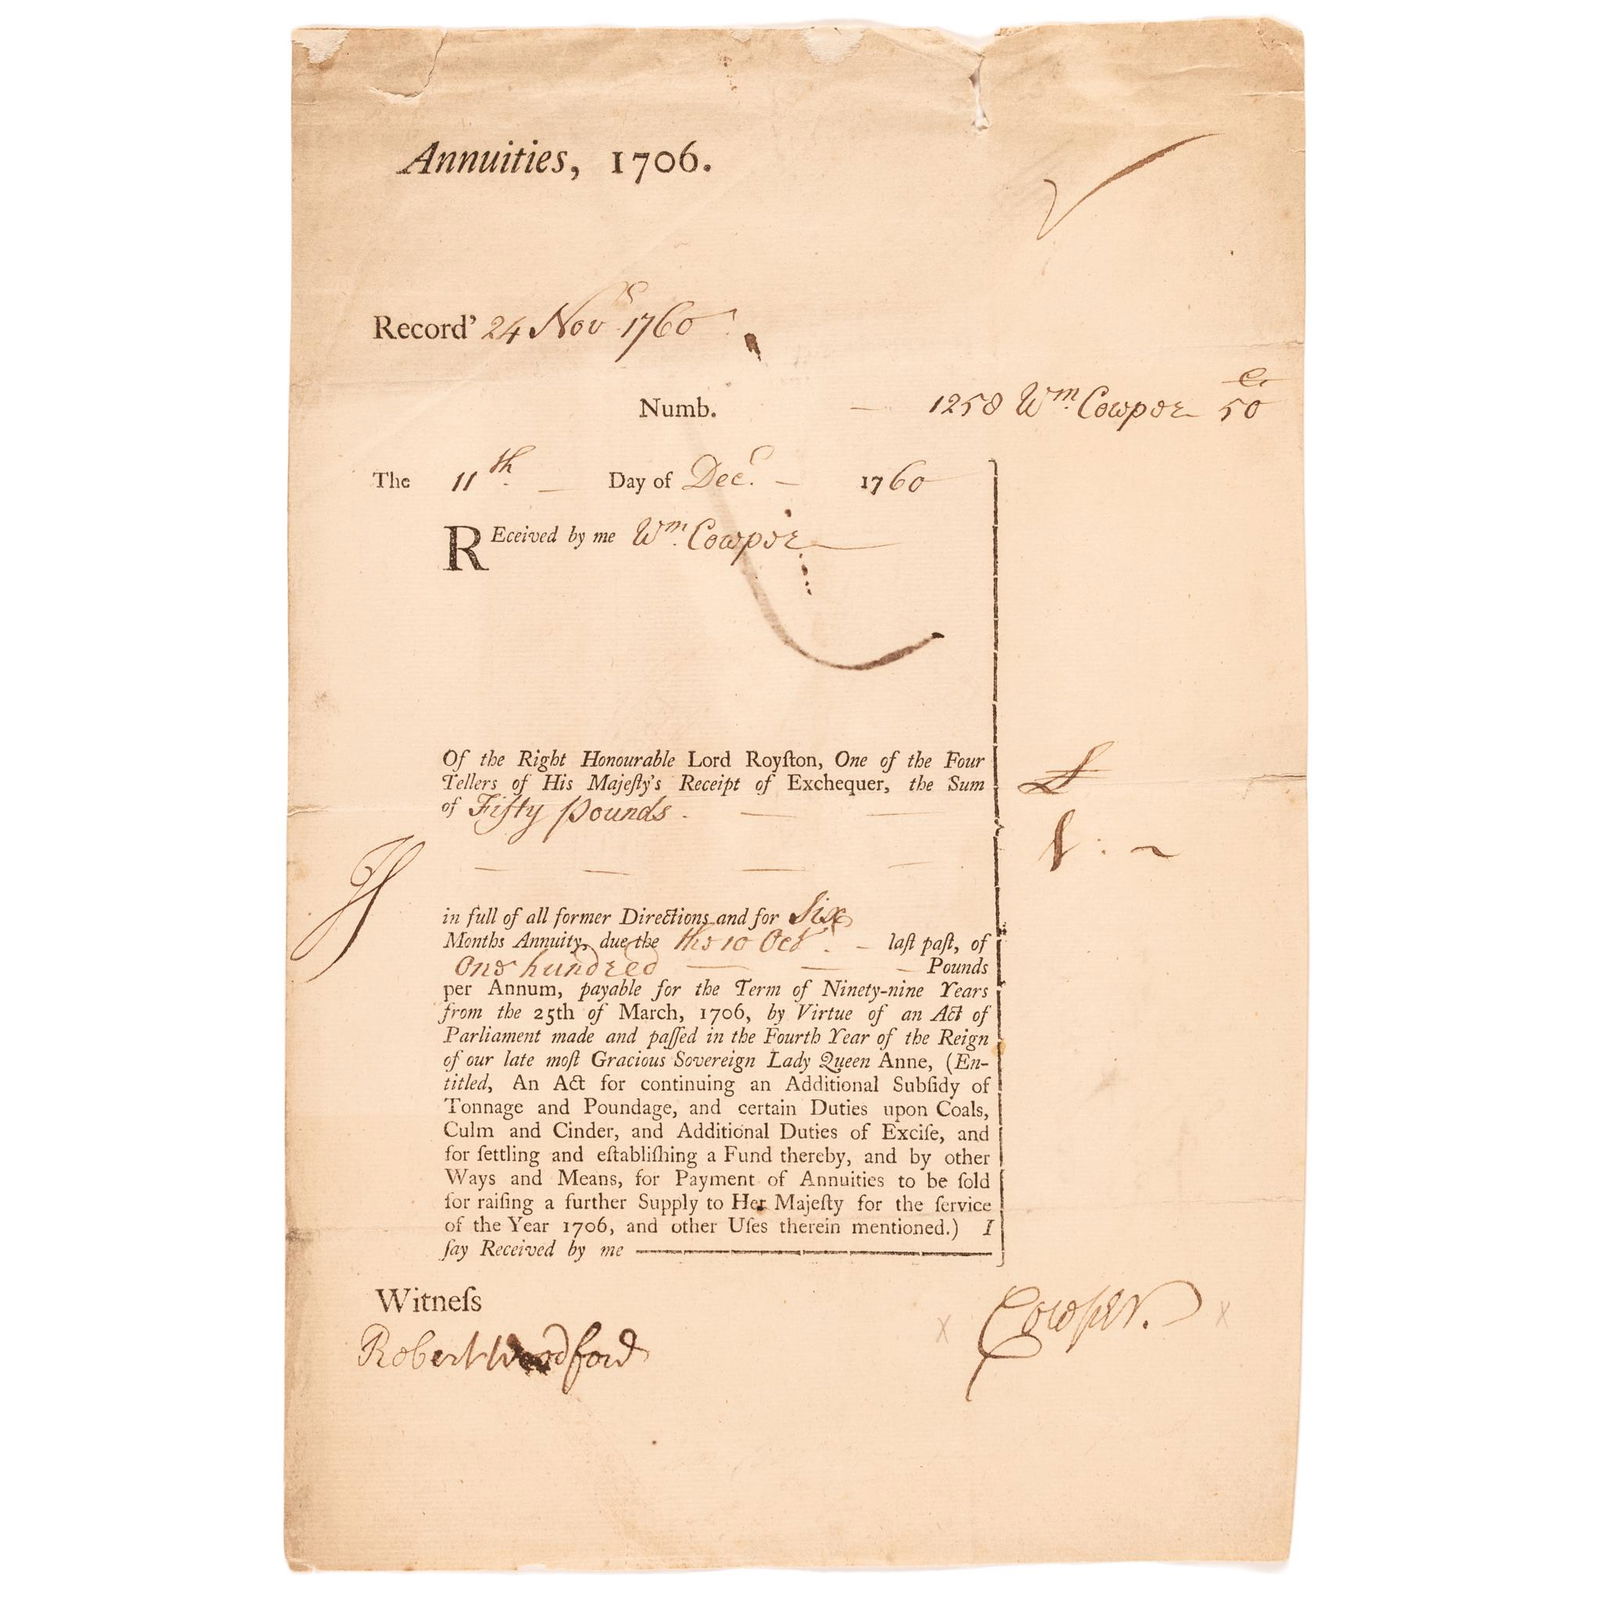 Annuities, 1706.
Record' 24 Novr 1760
Numb. — 1258 Wm. Cowper 50
The 11th. — Day of Decr. — 1760
REceived by me Wm. Cowper
Of the Right Honourable Lord Royſton, One of the Four
Tellers of His Majeſty's Receipt of Exchequer, the Sum
of Fifty pounds. — —
— — — —
in full of all former Directions and for Six
Months Annuity, due the the 10 Octr. — laſt paſt, of
One hundred — — — Pounds
per Annum, payable for the Term of Ninety-nine Years
from the 25th of March, 1706, by Virtue of an Act of
Parliament made and paſſed in the Fourth Year of the Reign
of our late moſt Gracious Sovereign Lady Queen Anne, (En-
titled, An Act for continuing an Additional Subſidy of
Tonnage and Poundage, and certain Duties upon Coals,
Culm and Cinder, and Additional Duties of Exciſe, and
for ſettling and eſtabliſhing a Fund thereby, and by other
Ways and Means, for Payment of Annuities to be ſold
for raiſing a further Supply to Her Majeſty for the ſervice
of the Year 1706, and other Uſes therein mentioned.) I
ſay Received by me —
Witneſs
Robert Woodford
x Cowper. x